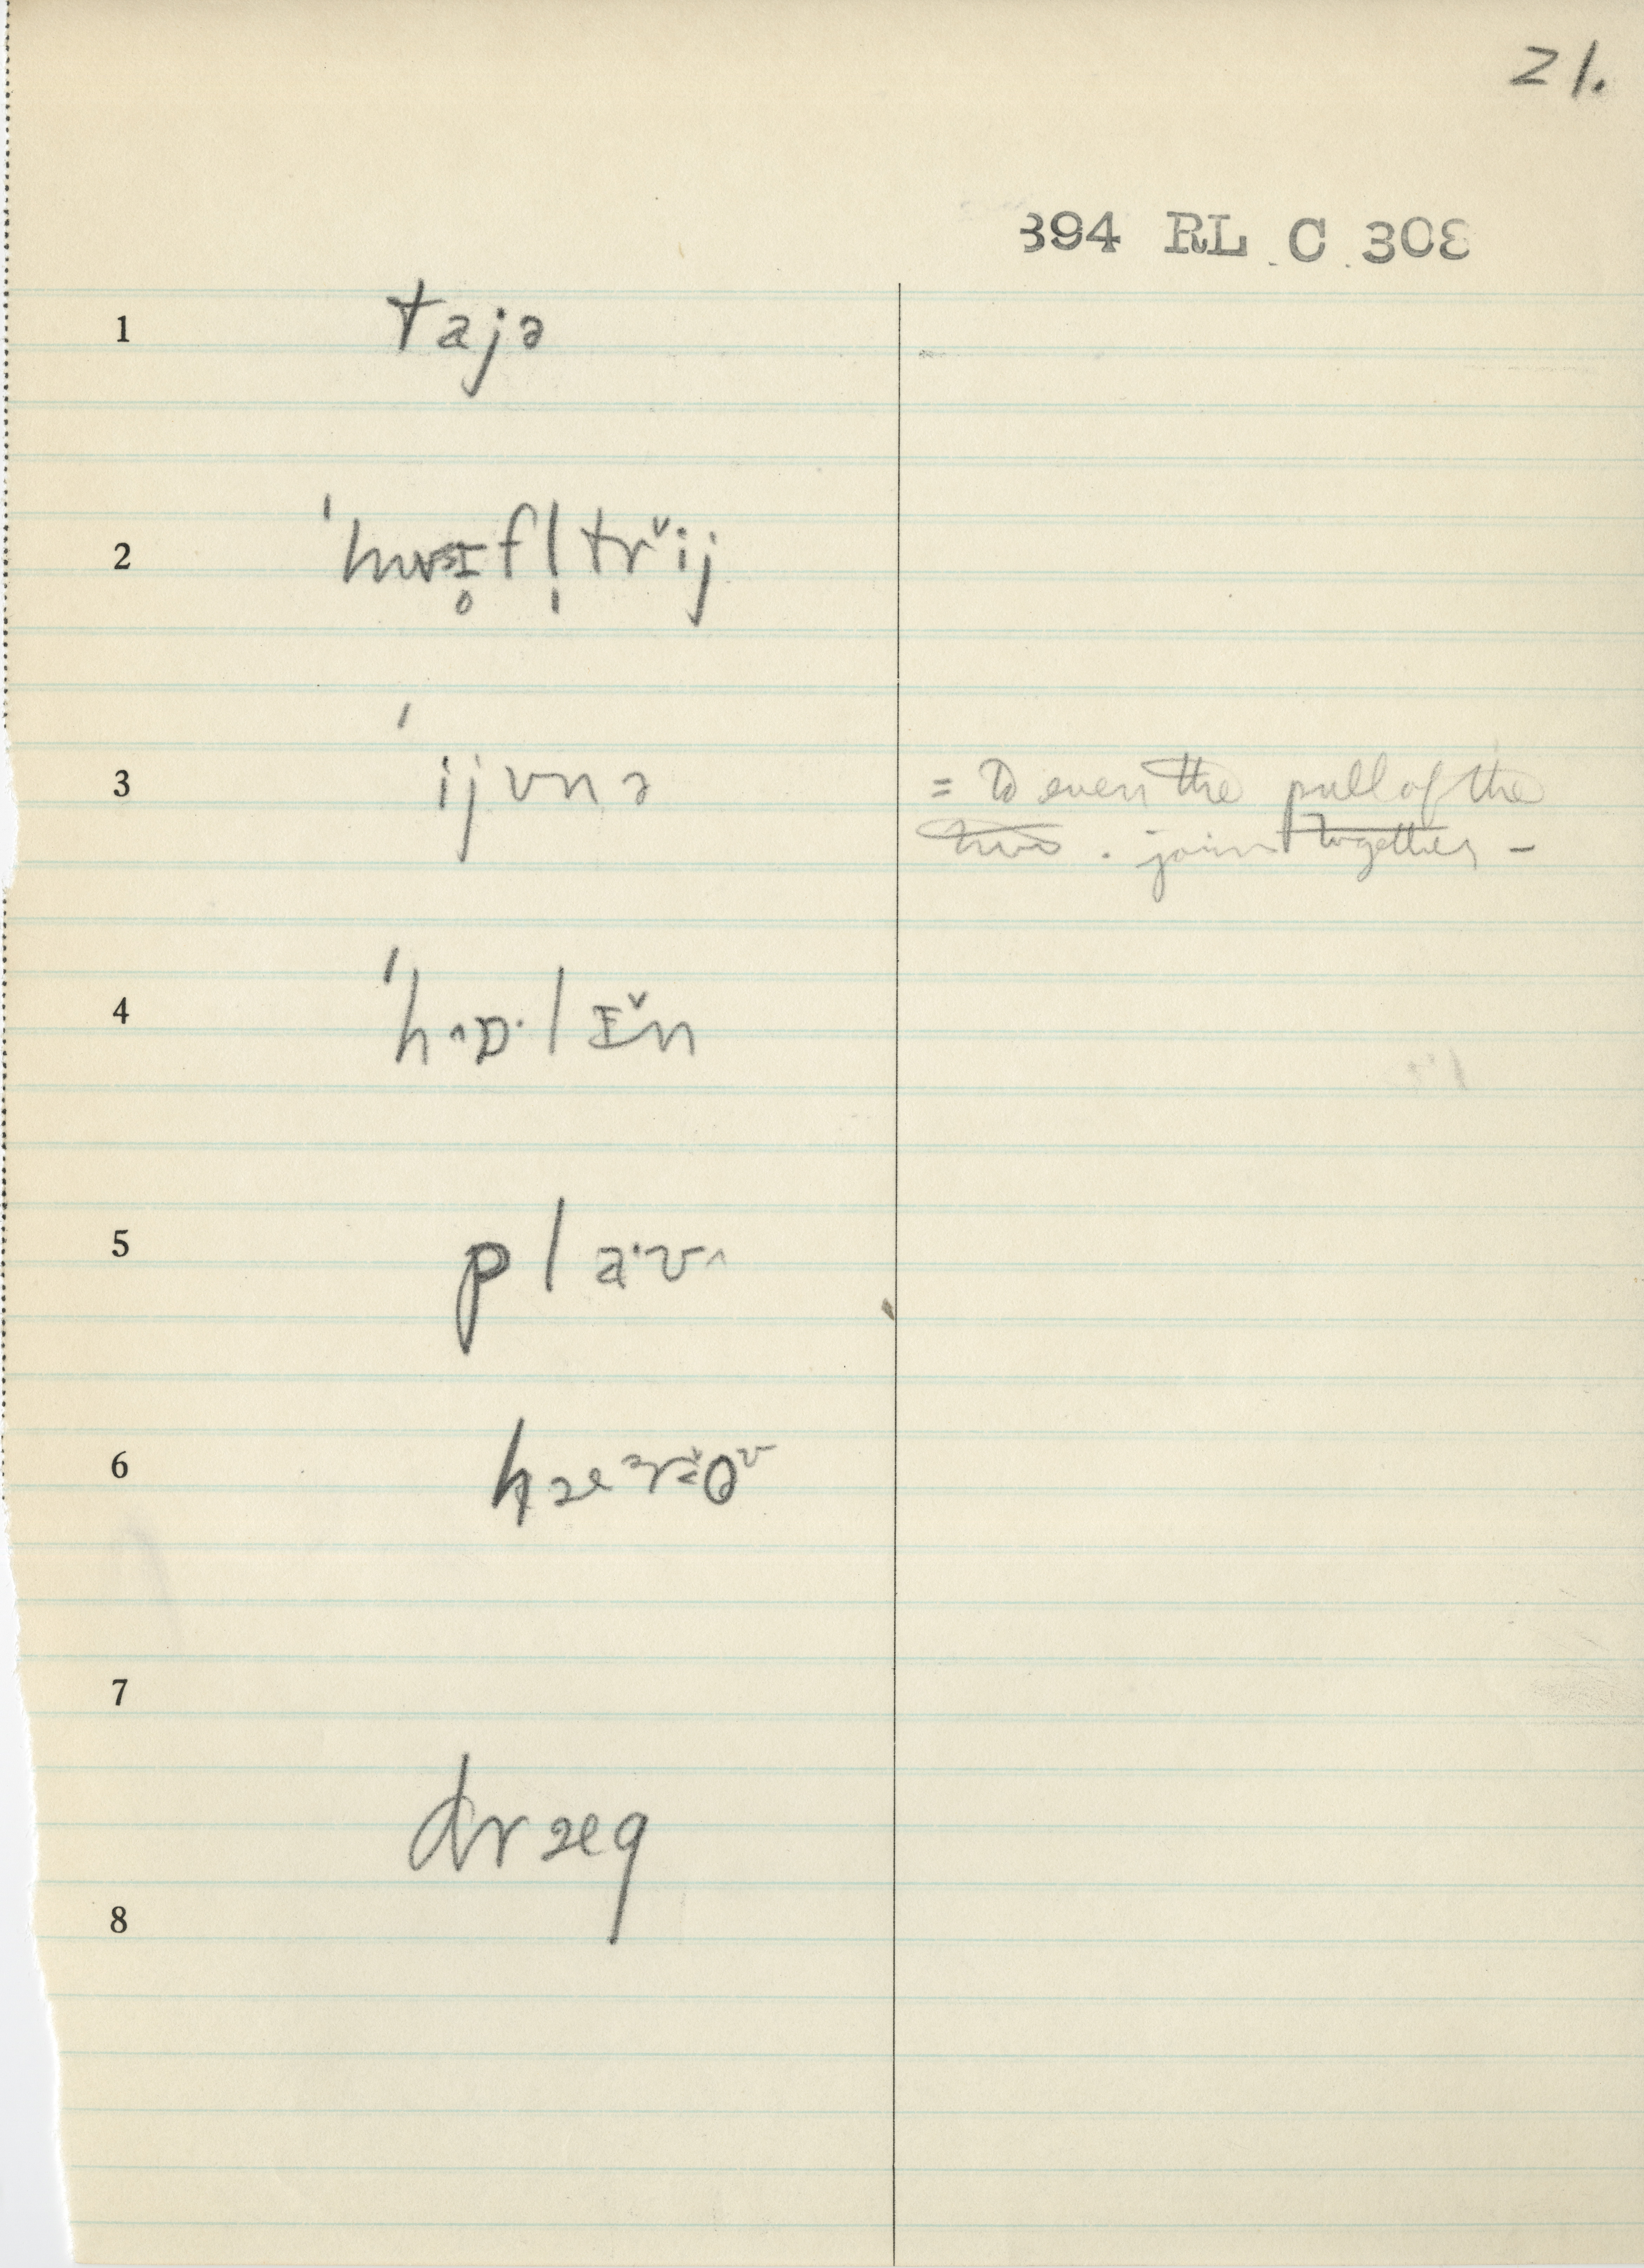 21.
394 RL C 308
1 tajə
2 ˈhwɪfl̩trĭj
3 ˈijvnə = To even the pull of the
two . join together –
4 ˈhɒ·lɪ̆n
5 pla·ʊ^
6
7
dræg
8